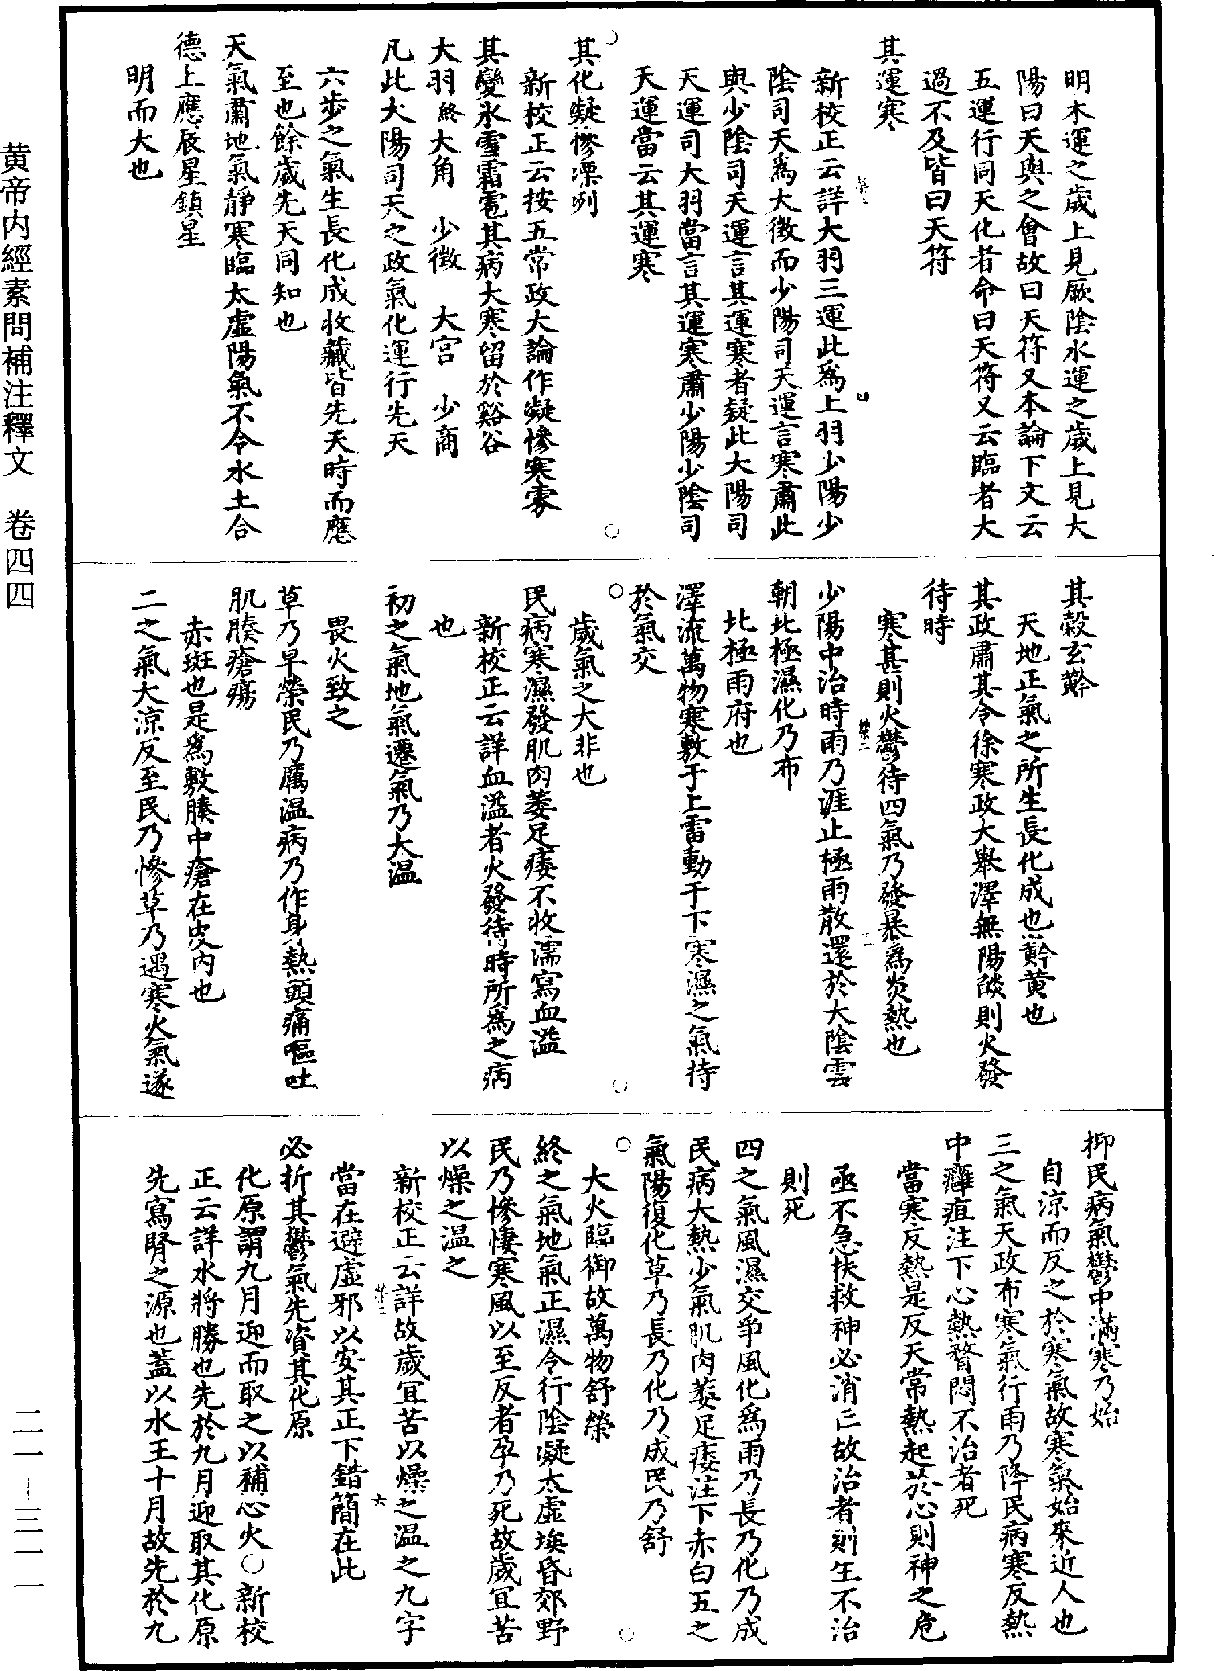 明木運之歲上見厥陰水運之歲上見大
陽曰天與之會故曰天符又本論下文云
五運行同天化者命曰天符又云臨者大
過不及皆曰天符
其運寒
新校正云詳大羽三運此爲上羽少陽少
陰司天爲大徵而少陽司天運言寒肅此
與少陰司天運言其運寒者疑此大陽司
天運司大羽當言其運寒肅少陽少陰司
天運當云其運寒
其化凝慘凓冽
新校正云按五常政大論作凝慘寒雰
其變氷雪霜雹其病大寒留於谿谷
大羽終大角　少徵　大宮　少商
凡此大陽司天之政氣化運行先天
六步之氣生長化成收藏皆先天時而應
至也餘歲先天同知也
天氣肅地氣靜寒臨太虛陽氣不令水土合
德上應辰星鎮星
明而大也
其穀玄黅
天地正氣之所生長化成也黅黃也
其政肅其令徐寒政大舉澤無陽燄則火發
待時
寒甚則火鬱待四氣乃發暴爲炎熱也
少陽中治時雨乃涯止極雨散還於大陰雲
朝北極濕化乃布
北極雨府也
澤流萬物寒敷于上雷動于下寒濕之氣持
於氣交
歲氣之大非也
民病寒濕發肌肉萎足痿不收濡寫血溢
新校正云詳血溢者火發待時所爲之病
也
初之氣地氣遷氣乃大温
畏火致之
草乃早榮民乃厲温病乃作身熱頭痛嘔吐
肌腠瘡瘍
赤斑也是爲敷腠中瘡在皮內也
二之氣大涼反至民乃慘草乃遇寒火氣遂
抑民病氣鬱中滿寒乃始
自涼而反之於寒氣故寒氣始來近人也
三之氣天政布寒氣行雨乃降民病寒反熱
中癰疽注下心熱瞀悶不治者死
當寒反熱是反天常熱起於心則神之危
亟不急扶救神必消亡故治者則生不治
則死
四之氣風濕交爭風化爲雨乃長乃化乃成
民病大熱少氣肌肉萎足痿注下赤白五之
氣陽復化草乃長乃化乃成民乃舒
大火臨御故萬物舒榮
終之氣地氣正濕令行陰凝太虛埃昏郊野
民乃慘悽寒風以至反者孕乃死故歲宜苦
以燥之温之
新校正云詳故歲宜苦以燥之温之九字
當在避虛邪以安其正下錯簡在此
必折其鬱氣先資其化原
化原謂九月迎而取之以補心火○新校
正云詳水將勝也先於九月迎取其化原
先寫腎之源也蓋以水王十月故先於九
黄帝内經素問補注釋文　卷四四
二一—三一一